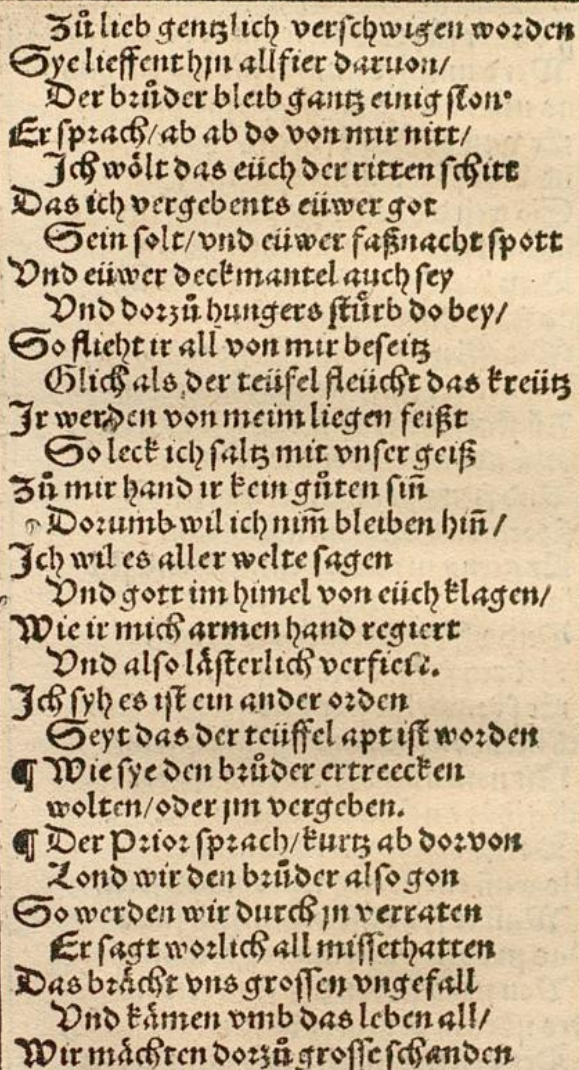 Zů lieb gentzlich verschwigen worden
Sye lieffent hyn all fier daruon/
Der brůder bleib gantz einig ston·
Er sprach/ab ab do von mir nitt/
Ich wölt das eüch der ritten schitt
Das ich vergebents eüwer got
Sein solt/vnd eüwer faßnacht spott
Vnd eüwer deckmantel auch sey
Vnd dorzů hungers stürb do bey/
So flieht ir all von mir beseitz
Glich als der teüfel fleücht das kreütz
Ir werden von meim liegen feißt
So leck ich saltz mit vnser geiß
Zů mir hand ir kein gůten sin̄
Dorumb wil ich nim̄ bleiben hin̄/
Ich wil es aller welte sagen
Vnd gott im himel von eüch klagen/
Wie ir mich armen hand regiert
Vnd also lästerlich verfiert.
Ich syh es ist ein ander orden
Seyt das der teüffel apt ist worden
¶ Wie sye den brůder ertreecken
wolten/oder ym vergeben.
¶ Der Prior sprach/kurtz ab dorvon
Lond wir den brůder also gon
So werden wir durch yn verraten
Er sagt worlich all missethatten
Das brächt vns grossen vngefall
Vnd kämen vmb das leben all/
Wir mächten dorzů grosse schanden